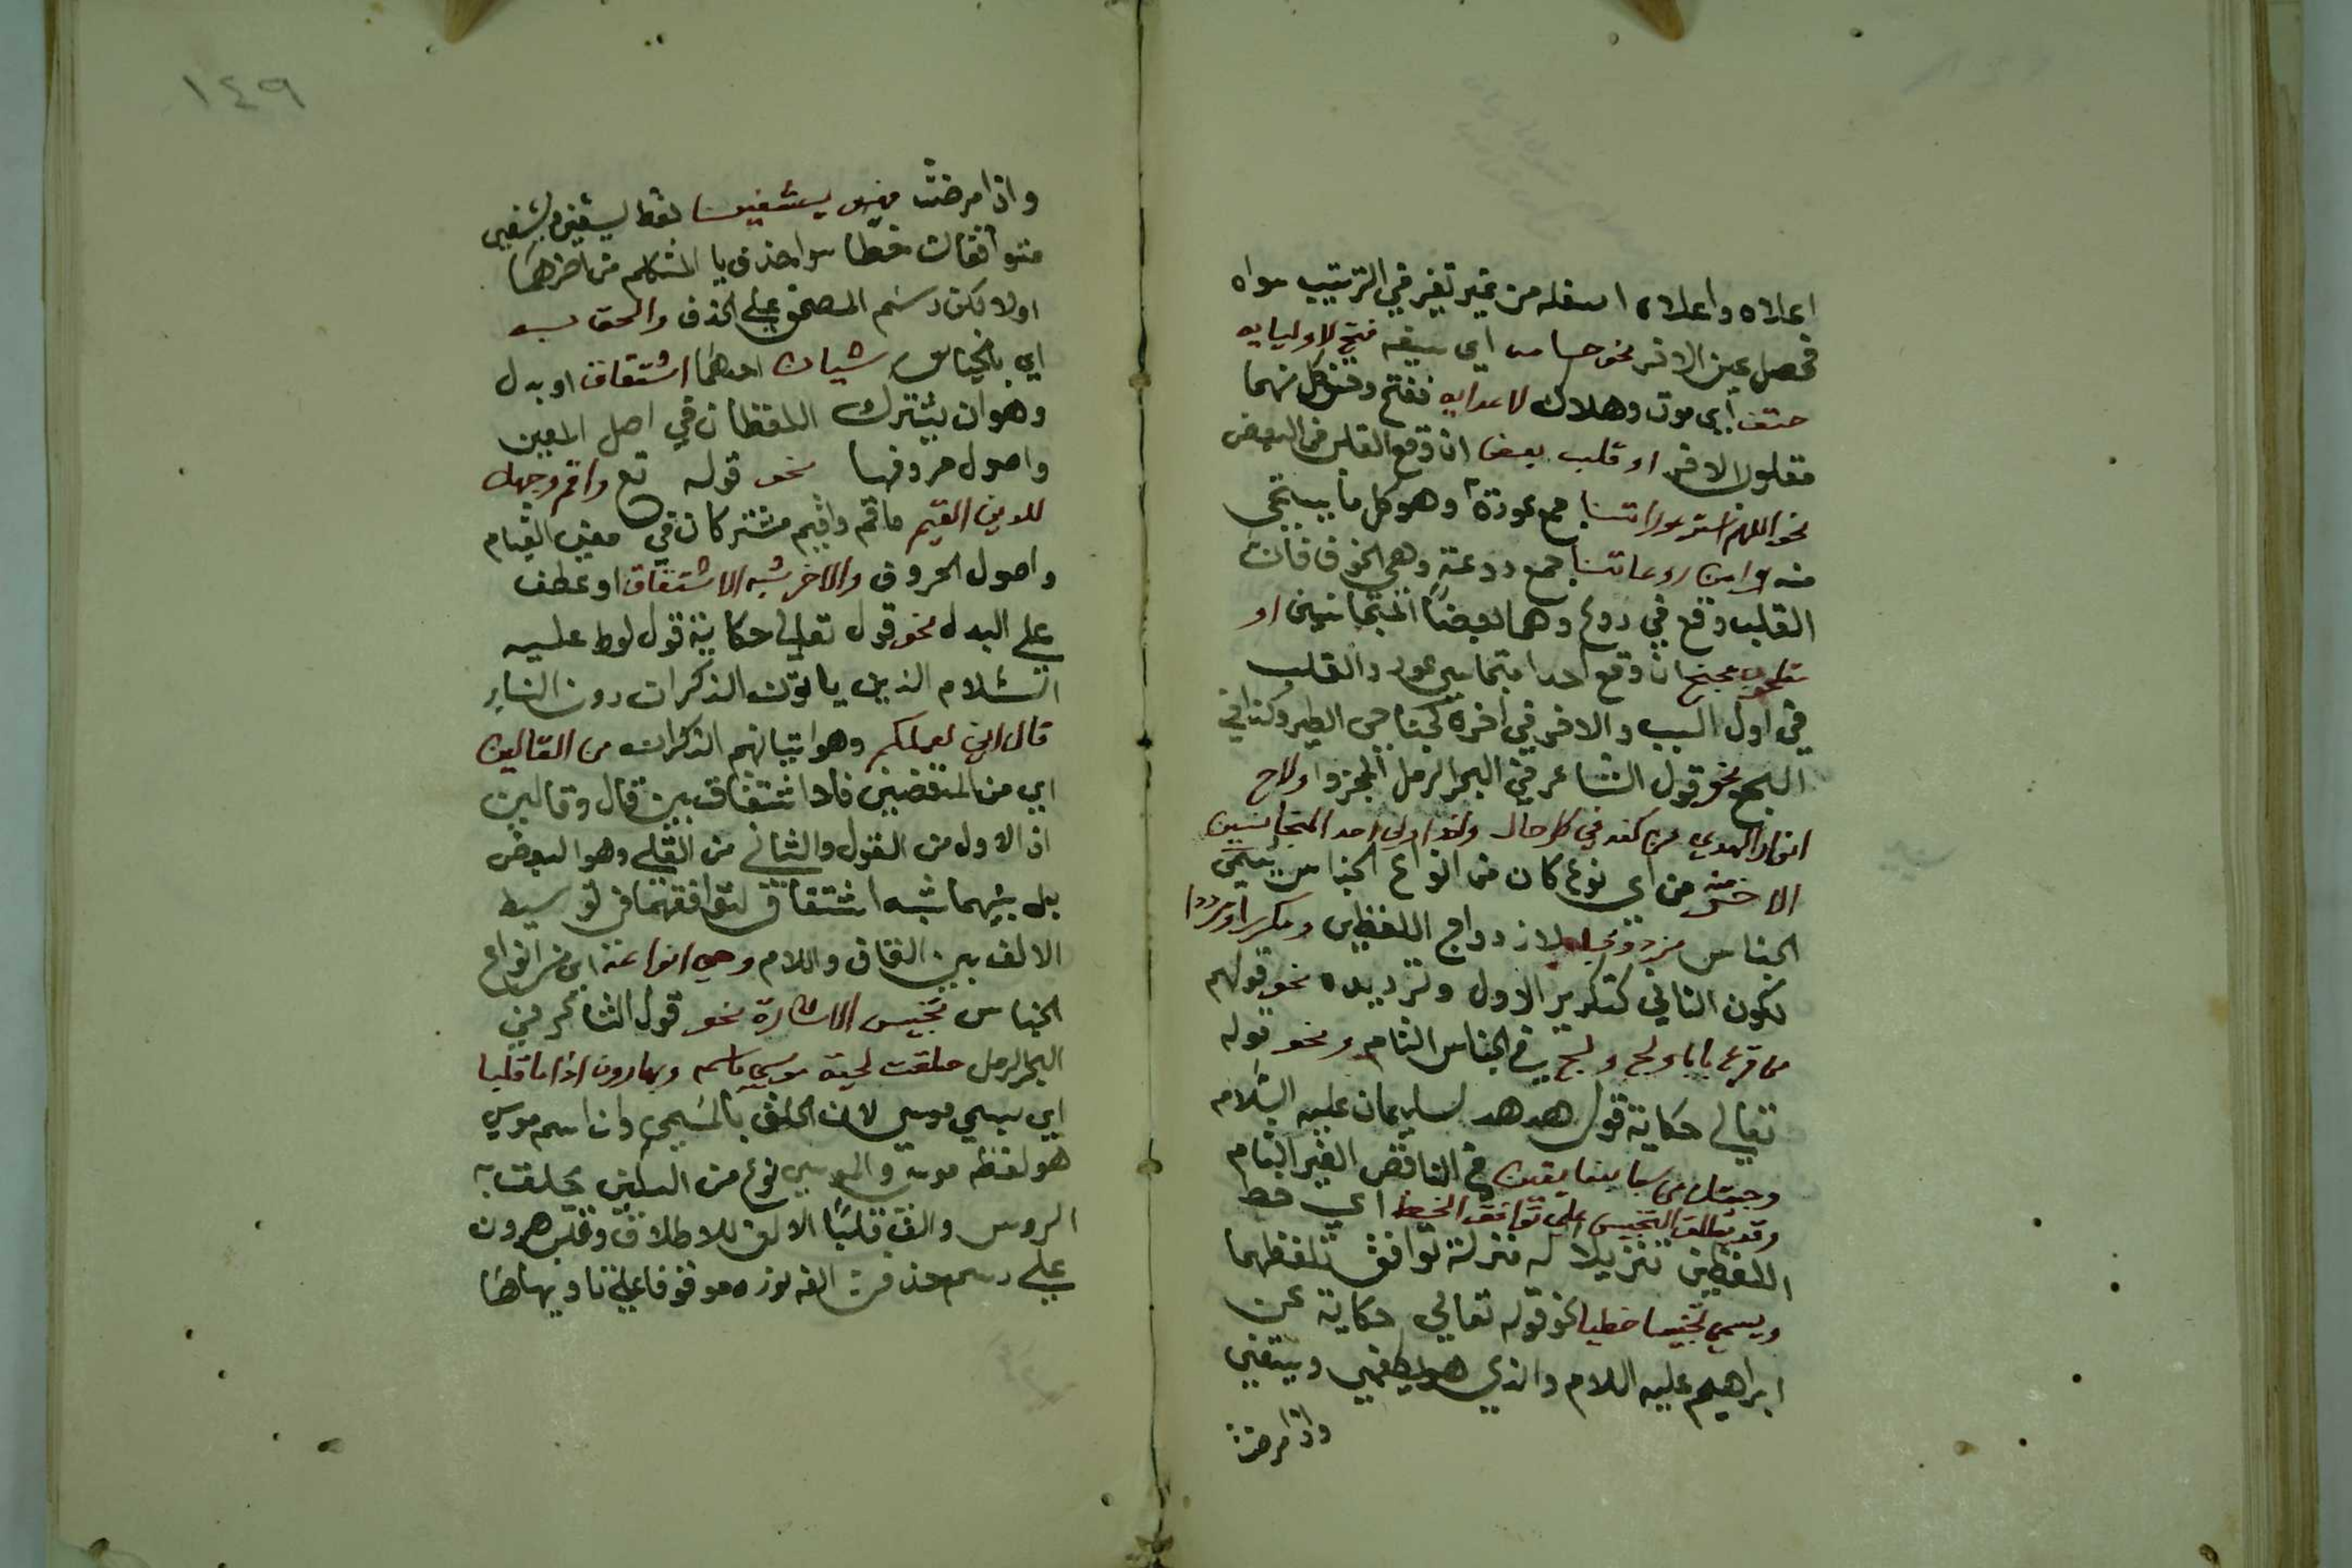 اعلاه واعلاه اسفله من غير تغير في الترتيب سواه
فحصل عين الاخر نحو حسامه اي سيفه فتح لاوليايه
حتف اي موت وهلاك لاعدايه ففتح وحتف كل منهما
مقلوب الاخر او قلب بعض ان وقع القلب في البعض
نحو اللهم استر عوراتنا جمع عورة وهو كل ما يستحي
منه وامن روعاتنا جمع روعة وهي الخوف فان
القلب وقع في روع وهما بعضا المتجانسين او
مقلوب مجنح ان وقع احد متجانسي عور والقلب
في اول البيت والاخر في اخره كجناحي الطير وكذا في
السجع نحو قول الشاعر في البحر الرمل المجزوا ولاح
انوار الهدي من كفه في كل حال واذا ولي احد المتجانسين
الاخر منه من اي نوع كان من انواع الجناس يسمي
الجناس مزدوجا لازدواج اللفظين ومكررا ومرددا
لكون الثاني كتكرير الاول وترديده نحو قولهم
من قرع بابا ولج ولج في الجناس التام ونحو قوله
تعالي حكاية قول هدهد لسليمان عليه السلام
وجيتك من سبا بنبا يقين في الناقص الغير التام
وقد يطلق التجنيس علي توافق الخط اي خط
اللفظين تنزيلا له منزلة توافق تلفظهما
ويسمي تجنيسا خطيا نحو قوله تعالي حكاية عن
ابراهيم عليه اللام والذي هو يطعمني ويسقين
واذا مرضت
١٤٩
واذا مرضت فهو يشفين فقط يسقين ويشفين
متوافقان خطا سوا حذف يا المتكلم من اخرهما
اولا لكن رسم المصحف علي الحذف والحق به
اي بالجناس شيان احدهما اشتقاق او بدل
وهو ان يشترك اللفظان في اصل المعني
واصول حروفها نحو قوله تع واقم وجهك
للدين القيم فاقم وقيم مشتركان في معني القيام
واصول الحروف والاخر شبه الاشتقاق او عطف
علي البدل نحو قول تعالي حكاية قول لوط عليه
السلام الذين ياتون الذكرات دون النساير
قال اني لعملكم وهو اتيانهم الذكران من القالين
اي من المنقضين فلا اشتقاق بين قال وقالين
اذ الاول من القول والثاني من القلي وهو البعض
بل بينهما شبه اشتقاق لتوافقهما في توسيط
الالف بين القاف واللام وهي انواعه اي من انواع
الجناس تجنيس الاشارة نحو قول الشاعر في
البحر الرمل حلقت لحية موسي باسمه وبهارون اذا ما قلبا
اي بسمي موسي لان الحلق بالمسمي وان اسم موسي
هو لفظ موسي والموسي نوع من السكين يحلق به
الروس والف قلبا الالف للاطلاق وقلب هرون
علي رسم حذف الفه نوره موقوفا علي نا ويهاطا